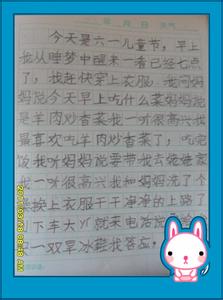 月 日
今天是六一儿童节，早上
我从睡梦中醒来一看已经七点
了，我赶快穿上衣服。我问妈
妈说今天早上吃什么菜妈妈说
是羊肉炒香菜我一听很高兴我
最喜欢吃羊肉炒香菜了，吃完
饭我听妈妈说要带我去姥姥家
我一听很高兴我和妈妈洗了个
澡换上衣服干干净净的上路了
下车大丫就来电话说
一双旱冰鞋我答应